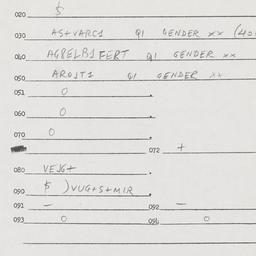 020 $
030 AS+VARC1 Q1 GENDER xx (40
040 AGRELB1 FERT Q1 GENDER xx
050 AROJT1 Q1 GENDER xx
051 0
060 0
070 0
072 +
080 VEJG+
090 $ )VUG+S+MIR
091 – 092 –
093 0 096 0